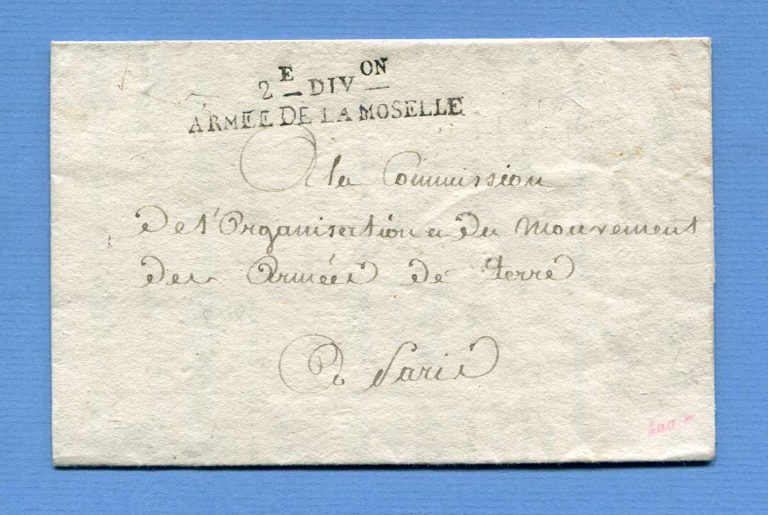 2E DIVON
ARMÉE DE LA MOSELLE
A la Commission
De l'Organisation & du Mouvement
des Armées de terre
A Paris